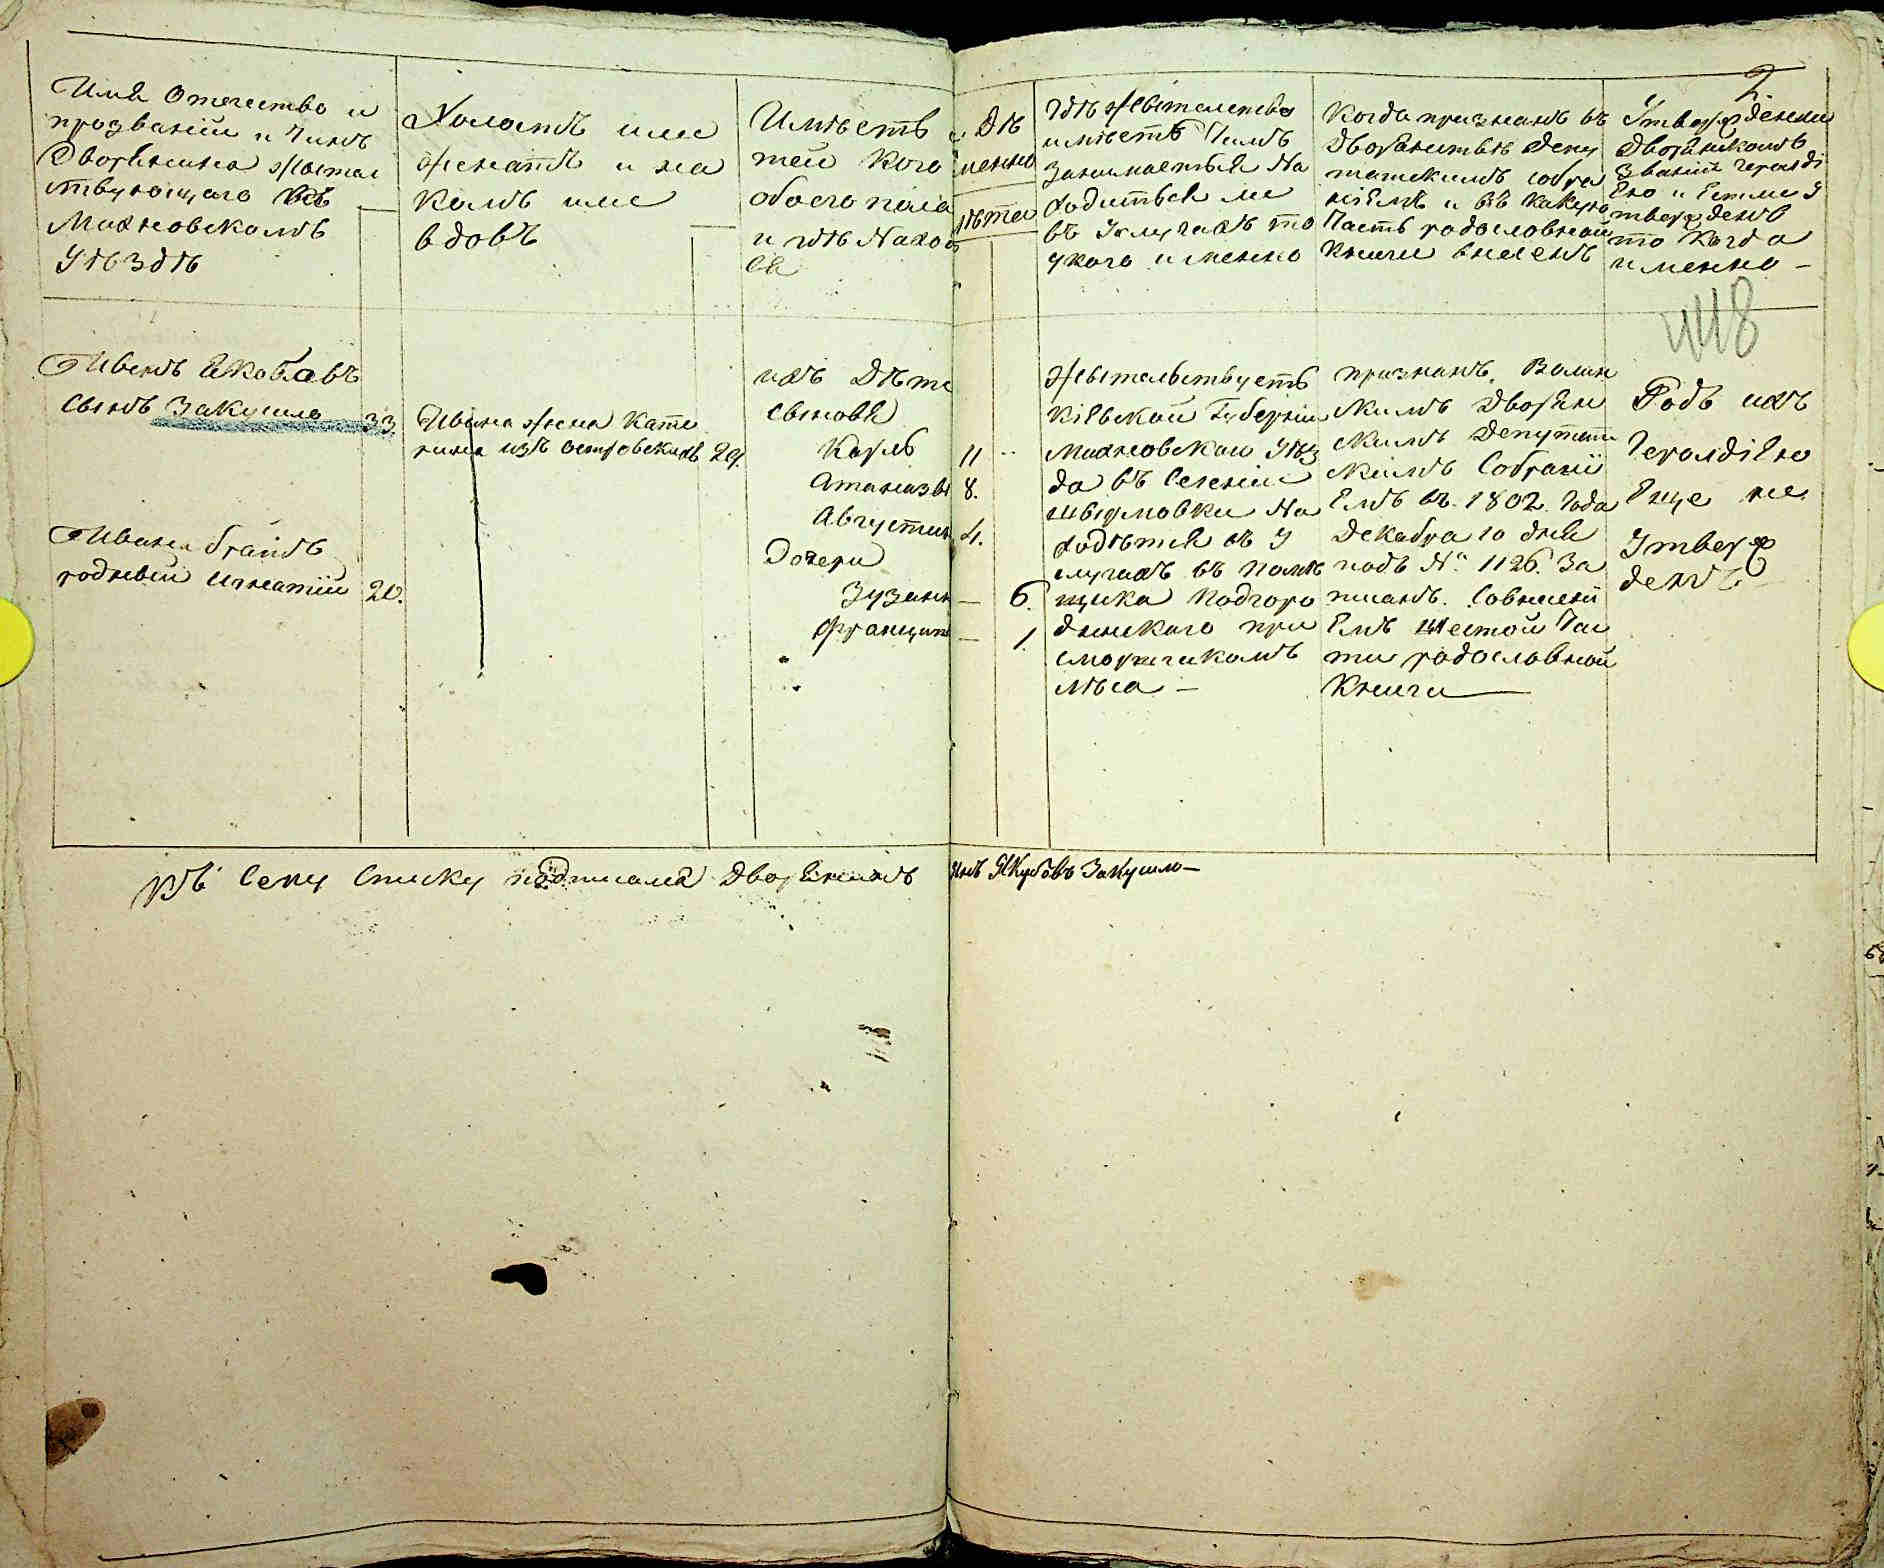 2.
Имя Отечество и
прозваніи и Чинъ
Дворянина жител
ствующаго въ
Махновскомъ
Уѣздѣ
Холостъ или
женатъ и на
комъ или
вдовъ
Имѣетъ
тей кого
обоего пола
и гдѣ Наход
ся
Дѣ
менно
лѣта
Гдѣ жительство
имѣетъ Чимъ
занимается На
ходится ли
въ Услугахъ то
укого именно
Когда признанъ въ
Дворянствѣ Депу
татскимъ собра
ніемъ и въ какую
Часть родословной
книги внесенъ
Утвержденни
Дворянскомъ
Званіи герольді
ею и Если у
твержденъ
то Когда
именно
448
Иванъ Яковлевъ
сынъ Закушло 33.
Ивана братъ
родный Игнатій 20.
Ивана жена Кате
рина изъ островскихъ 29.
ихъ Дѣти
сыновя
Карль 11
Атаназы 8.
Августин 4.
Дочери
Зузанн 6.
Францишк 1.
Жительствуетъ
Кіевской Губерніи
Махновскои Уѣз
да въ Селеніи
Находѣтся въ У
слугахъ въ Помѣ
щика Подгоро
денского при
лѣса
признанъ. Волин
скимъ Дворян
скимъ Депутат
скимъ Собрані
емъ въ. 1802. Года
Декабря 10 дня
подъ №. 1126. За
писанъ. Совнесені
емъ Шестой Час
ти родословной
Книги
Родъ ихъ
Герольдіею
Еще не
Утверж
денъ
Къ Сему Списку подписался Дворянинъ Иванъ Якубовъ Закушло